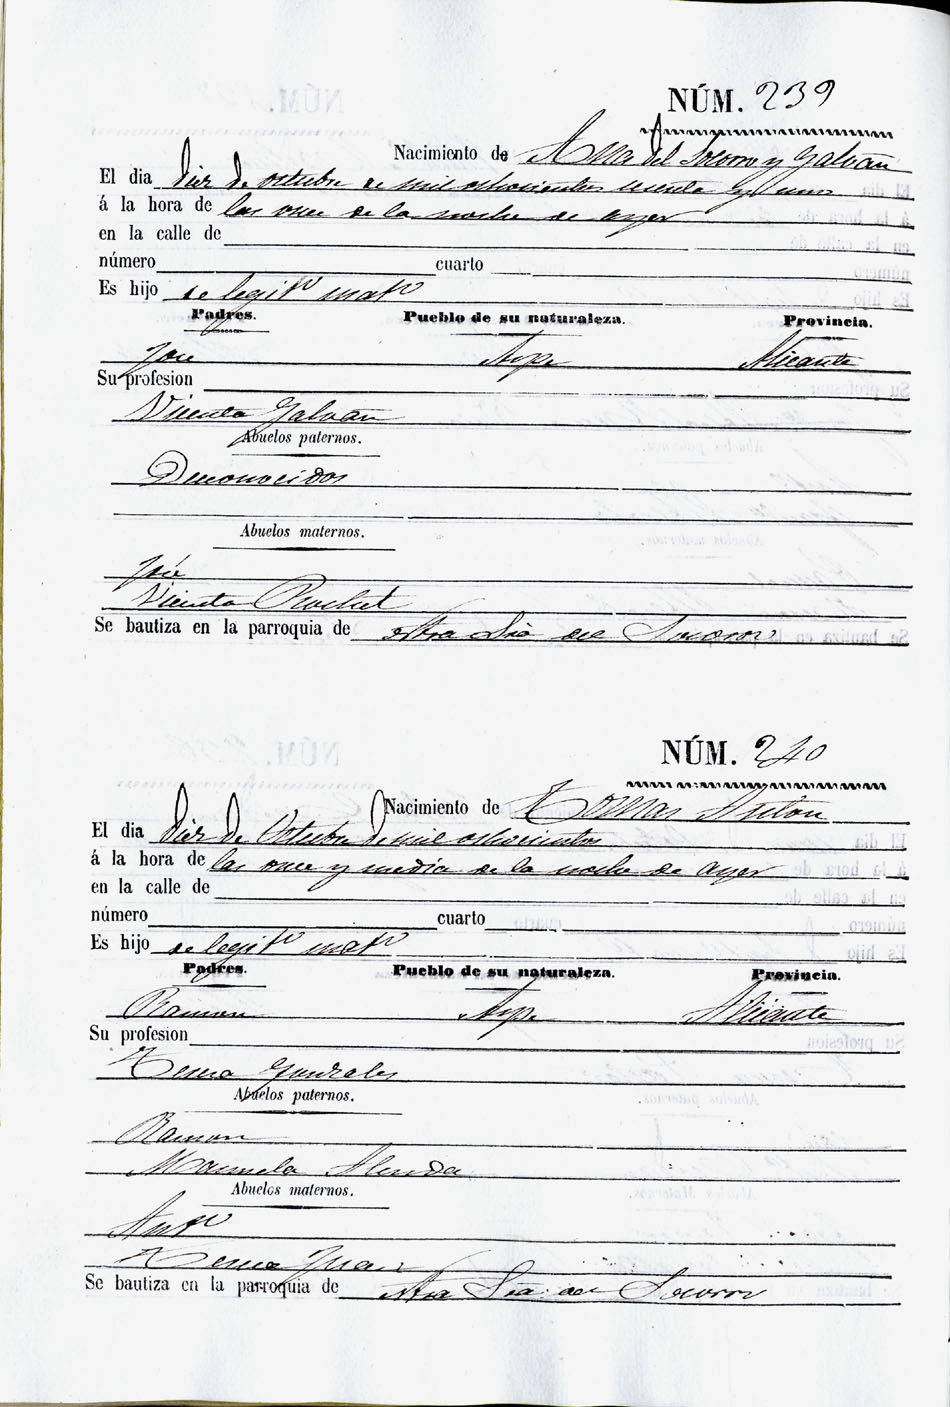 NÚM. 239
Nacimiento de Ana del Socorro y Galván
El dia diez de octubre de mil ochocientos sesenta y uno
á la hora de las once de la noche de ayer
en la calle de
número cuarto
Es hijo de legitº matº
Padres. Pueblo de su naturaleza. Provincia.
José Aspe Alicante
Su profesion
Vicenta Galván
Abuelos paternos.
Desconocidos
Abuelos maternos.
José
Vicenta Rochet
Se bautiza en la parroquia de Ntra Sra del Socorro
NÚM. 240
Nacimiento de Tomas Anton
El dia diez de Octubre de mil ochocientos
á la hora de las once y media de la noche de ayer
en la calle de
número cuarto
Es hijo de legitº matº
Padres. Pueblo de su naturaleza. Provincia.
Ramon Aspe Alicante
Su profesion
Teresa Gonzales
Abuelos paternos.
Ramon
Manuela Alenda
Abuelos maternos.
Antº
Teresa Juan
Se bautiza en la parroquia de Ntra Sra del Socorro